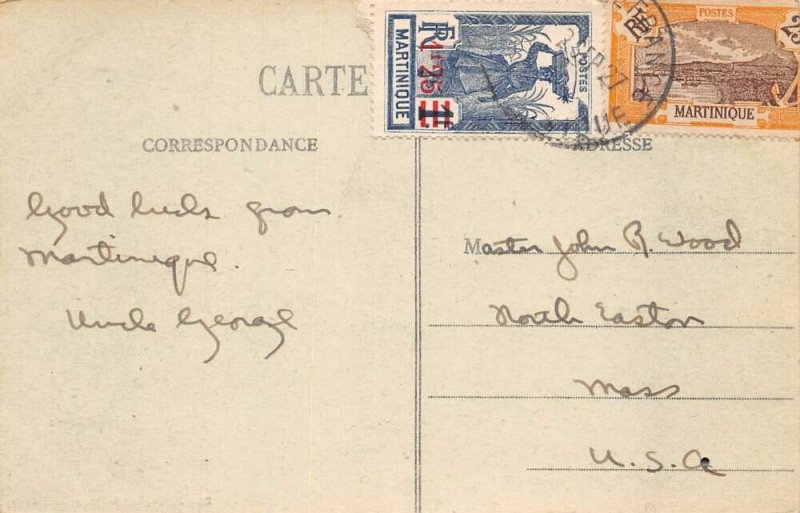 CARTE
CORRESPONDANCE
ADRESSE
RF
POSTES
MARTINIQUE
1F25
1F
RF
POSTES
25
MARTINIQUE
27
Good luck from
Martinique.
Uncle George
Master John R. Wood
North Easton
Mass
U.S.A